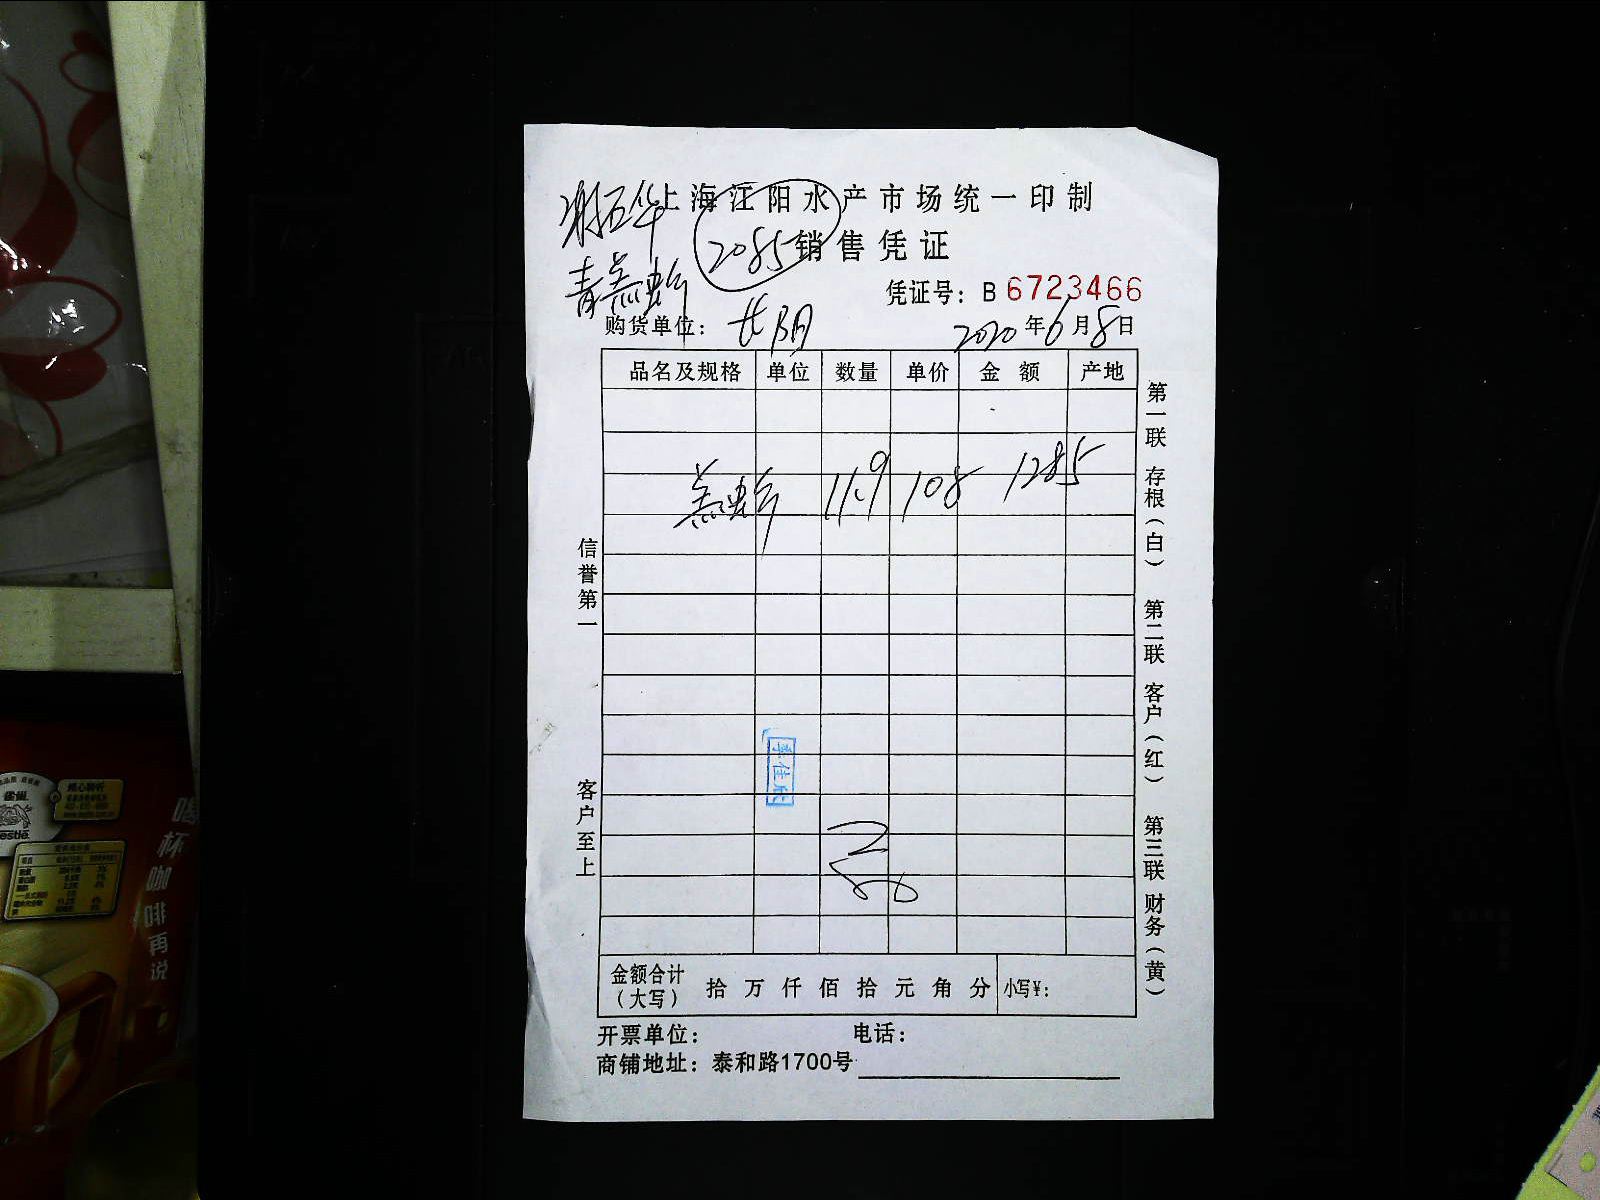 上海江阳水产市场统一印制
2085
销售凭证
凭证号：B 6723466
购货单位：长阳
2020年6月8日
品名及规格 单位 数量 单价 金额 产地
11.9 108 1285
信誉第一
客户至上
第一联 存根（白）
第二联 客户（红）
第三联 财务（黄）
金额合计（大写） 拾 万 仟 佰 拾 元 角 分 小写¥：
开票单位： 电话：
商铺地址：泰和路1700号
喝杯咖啡再说